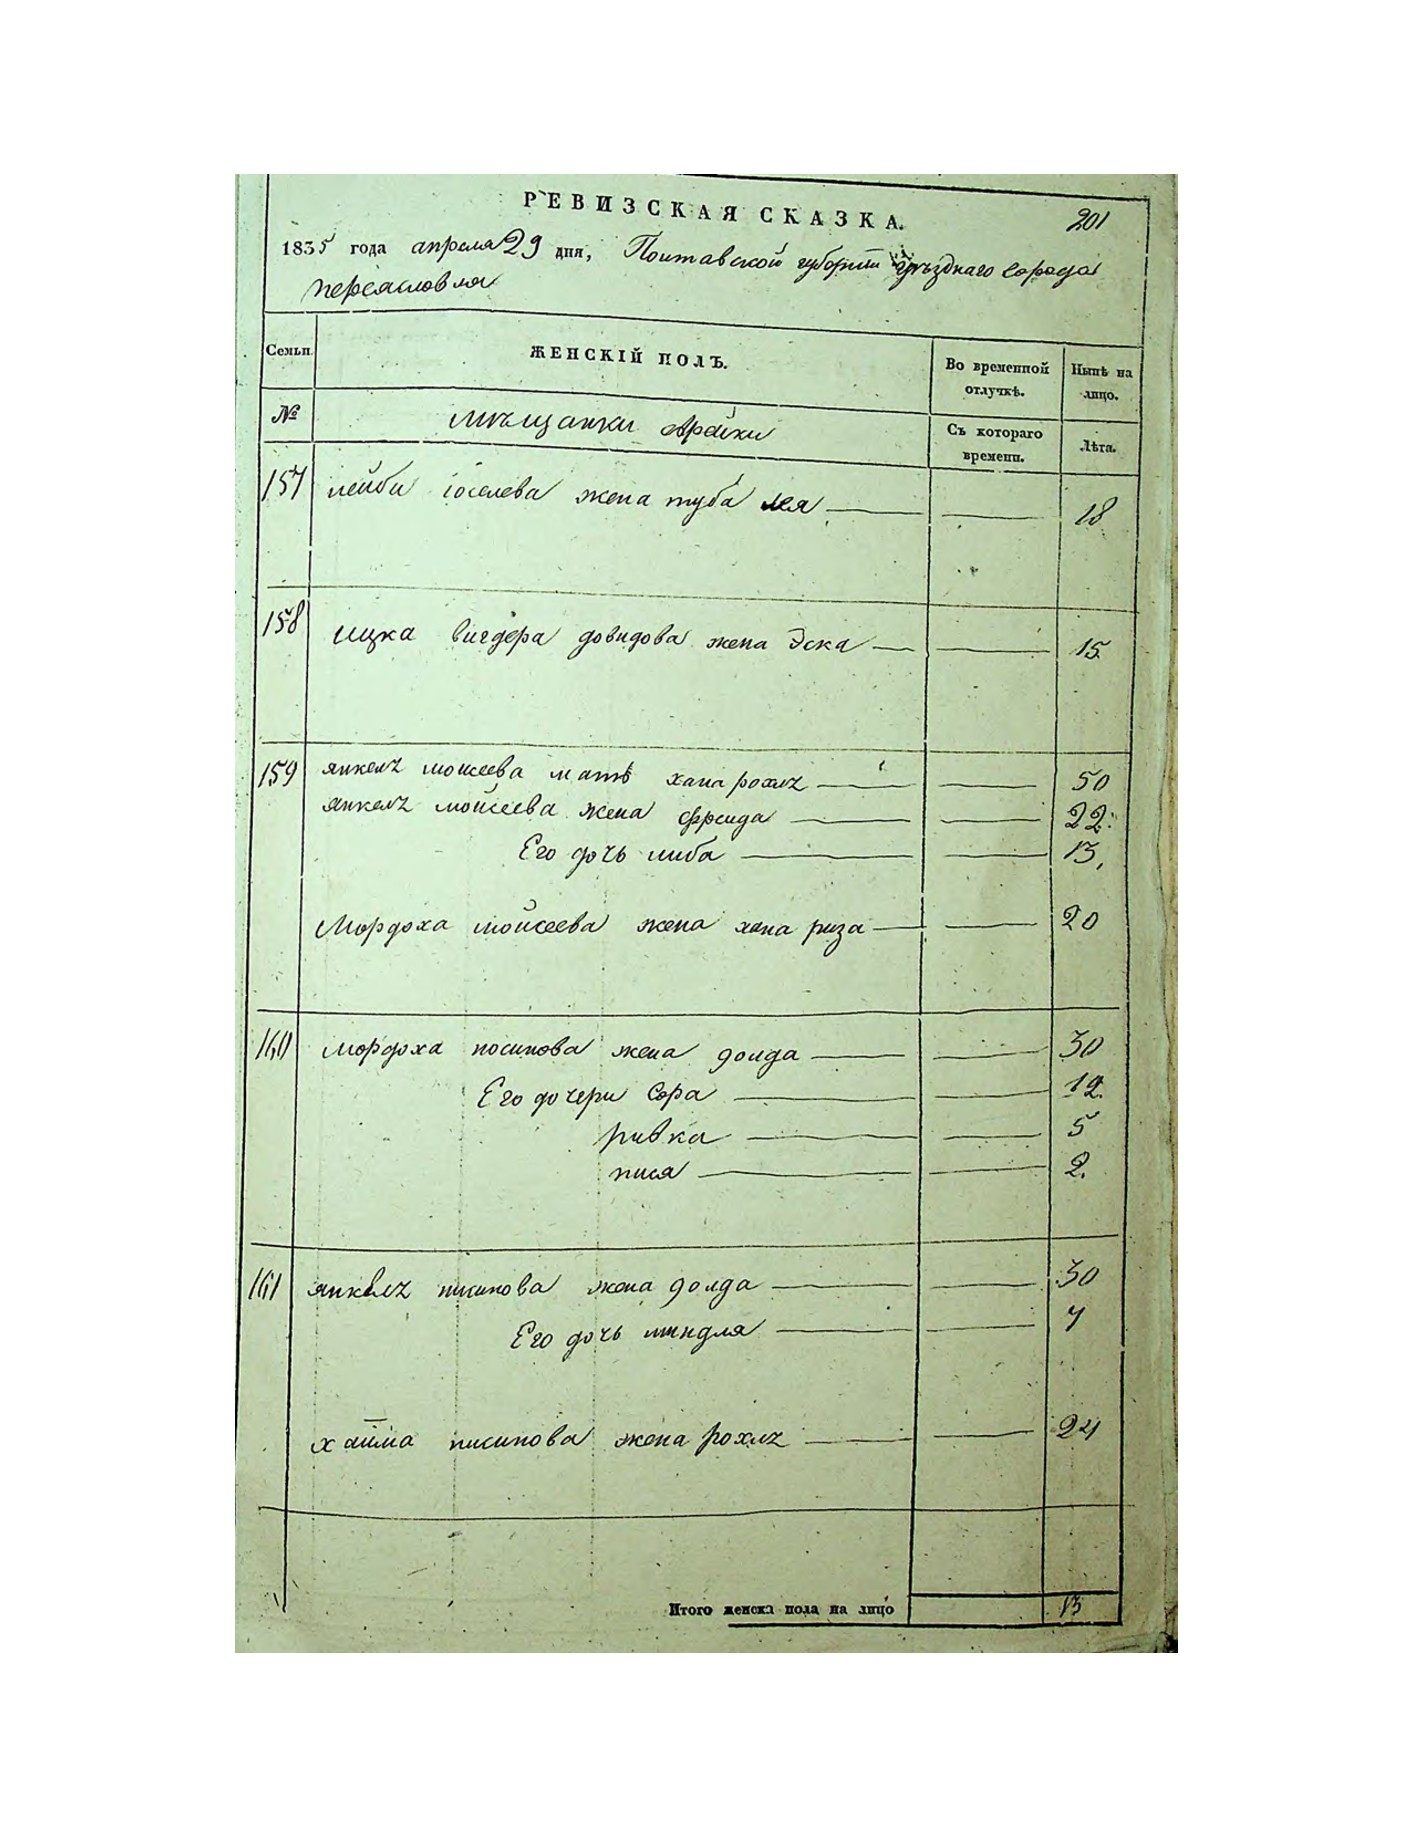 РЕВИЗСКАЯ СКАЗКА.
201
1835 года апреля 29 дня, Полтавской губернии уѣзднаго города
переяславля
Семьи
ЖЕНСКІЙ ПОЛЪ.
Во временной отлучкѣ.
Нынѣ на лицо.
№
мѣщанки еврейки
Съ котораго времени.
Лѣта.
157 лейби іоселева жена туба лея 18
158 ицка вигдера довидова жена Эска 15
159 янкелъ моисеева мать хана рохлъ 50
янкелъ мойсеева жена фрейда 22.
Его дочь либа 13,
Мордоха мойсеева жена хана риза 20
160 мордоха жена голда 30
Его дочери Сора 12.
ривка 5
песя 2.
161 янкелъ жена голда 30
Его дочь миндля 7
хаима жена рохлъ 24
Итого женска пола на лицо 13